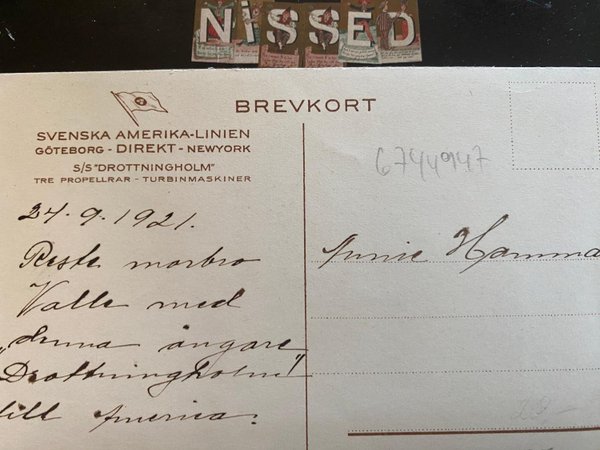 NiSSED
BREVKORT
SVENSKA AMERIKA-LINIEN
GÖTEBORG - DIREKT - NEWYORK
S/S "DROTTNINGHOLM"
TRE PROPELLRAR - TURBINMASKINER
67449147
24.9.1921.
Reste morbro
Valle med
"denna ångare
Drottningholm"
till America.
Annie Hamma